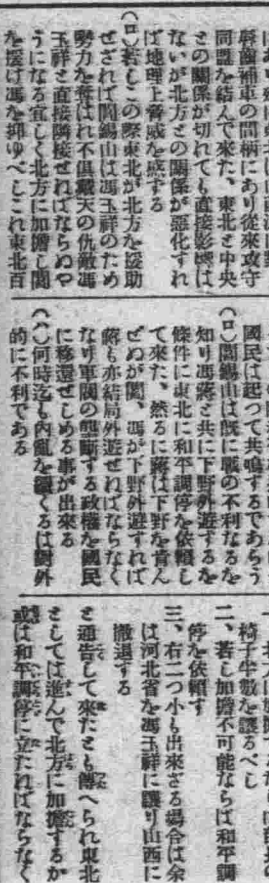 脣齒補車の間柄にあり從來攻守
同盟を結んで來た、東北と中央
との關係が切れても直接影響は
ないが北方との關係が惡化すれ
ば地理上脅威を感ずる
(ロ)若しこの際東北が北方を援助
せざれば閻錫山は馮玉祥のため
勢力を奪はれ不倶戴天の仇敵馮
玉祥と直接隣接せねばならぬや
うになる宜しく北方に加擔し閻
を援け馮を抑ゆべしこれ東北百
國民は起つて共鳴するであらう
(ロ)閻錫山は既に戰の不利なるを
知り馮蔣と共に下野外遊するを
條件に東北に和平調停を依賴し
て來た、然るに蔣は下野を肯ん
ぜぬが閻、馮が下野外遊すれば
蔣も亦結局外遊せねばならなく
なり軍閥の壟斷する政權を國民
に移還せしめる事が出來る
(ハ)何時迄も內亂を續くるは對外
的に不利である
椅子半數を讓るべし
二、若し加擔不可能ならば和平調
停を依賴す
三、右二つ小も出來ざる場合は余
は河北省を馮玉祥に讓り山西に
撤退する
と通告して來たとも傳へられ東北
としては進んで北方に加擔するか
或は和平調停に立たねばならなく